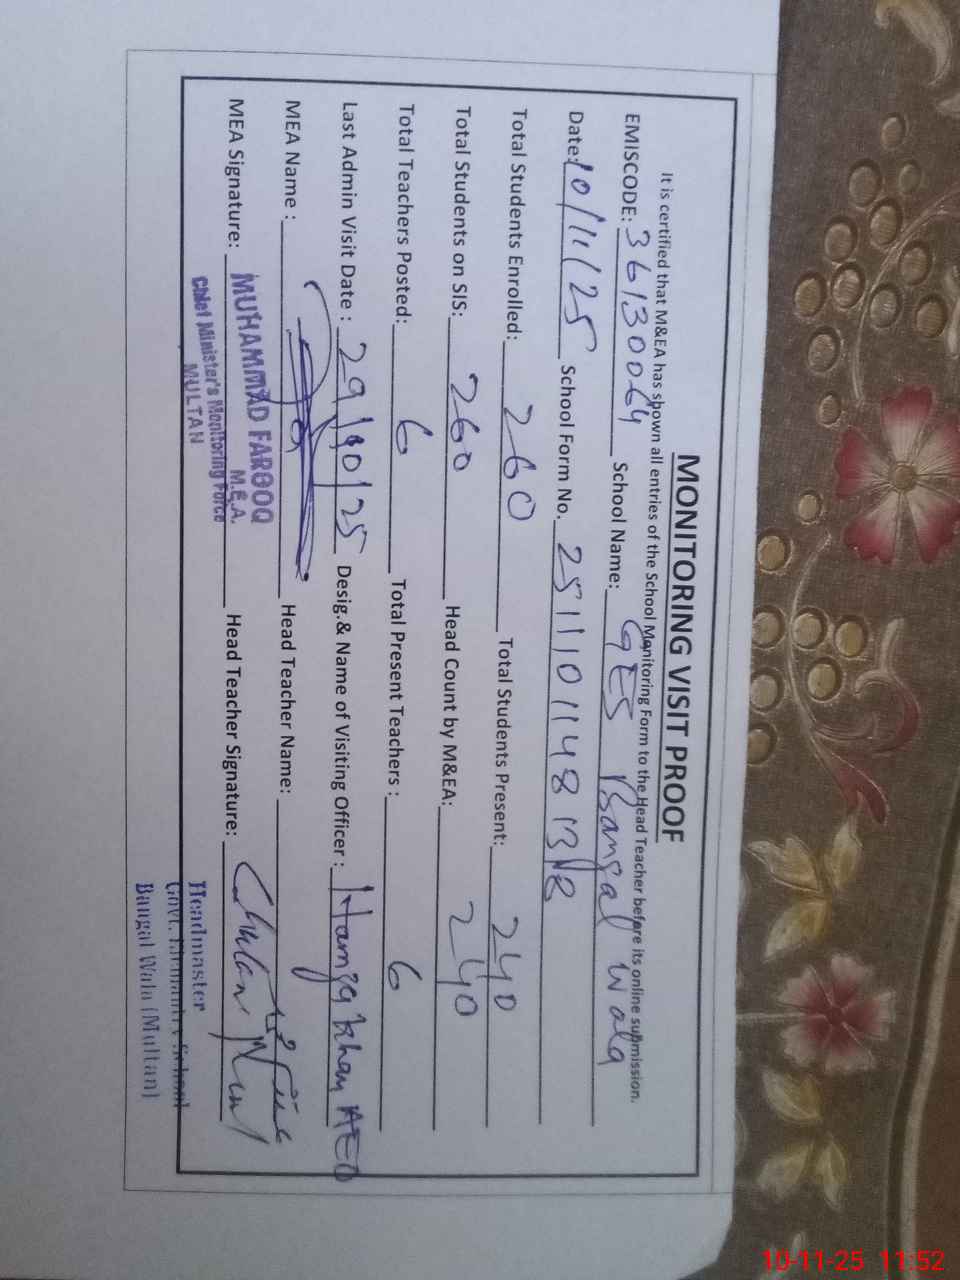 MONITORING VISIT PROOF
It is certified that M&EA has shown all entries of the School Monitoring Form to the Head Teacher before its online submission.
EMISCODE: 36130064 School Name: GES Bangal wala
Date: 10/11/25 School Form No. 2511101148
Total Students Enrolled: 260 Total Students Present: 240
Total Students on SIS: 260 Head Count by M&EA: 240
Total Teachers Posted: 6 Total Present Teachers : 6
Last Admin Visit Date : 29/10/25 Desig.& Name of Visiting Officer : Hamza khan AEO
MEA Name : Head Teacher Name:
MEA Signature: Head Teacher Signature:
MUHAMMAD FAROOQ
M.E.A.
Chief Minister's Monitoring Force
MULTAN
Headmaster
Govt. Elementry School
Bangal Wala (Multan)
10-11-25 11:52